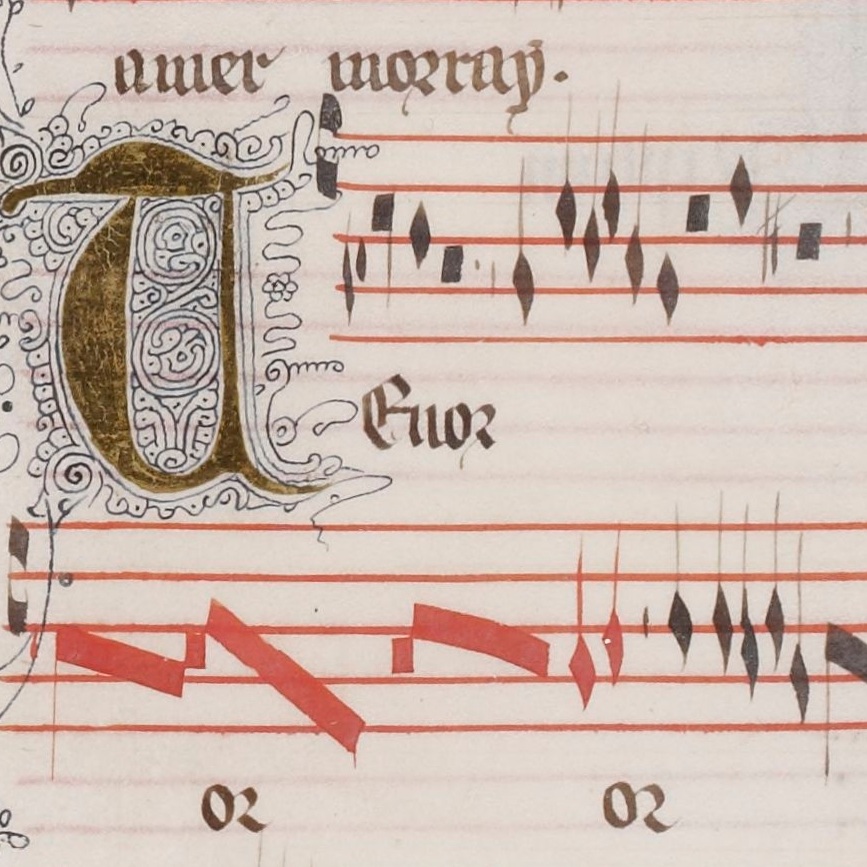 amer morray.
TEnor
or or